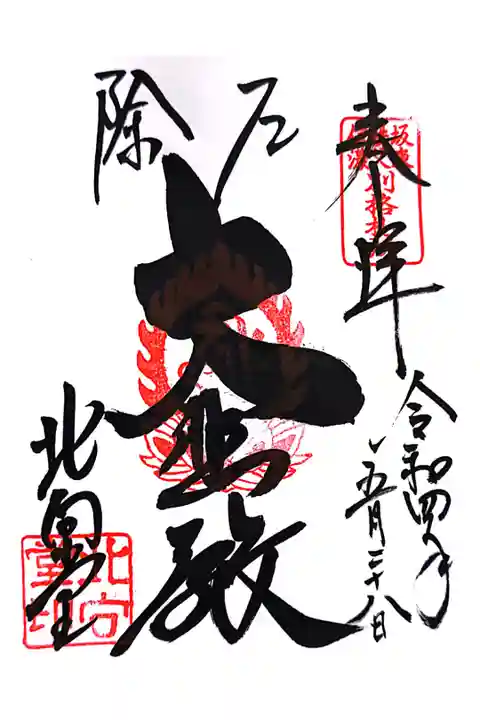 奉拝
令和四年
五月二十八日
厄除
大悲殿
北向堂
坂東
別格札所
北向堂印